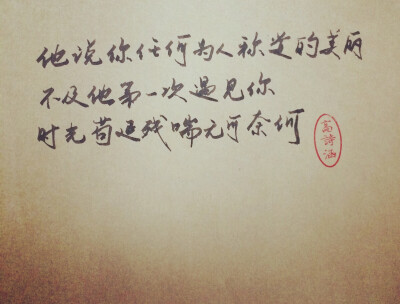 他说你任何为人称道的美丽
不及他第一次遇见你
时光苟延残喘无可奈何
高诗涵